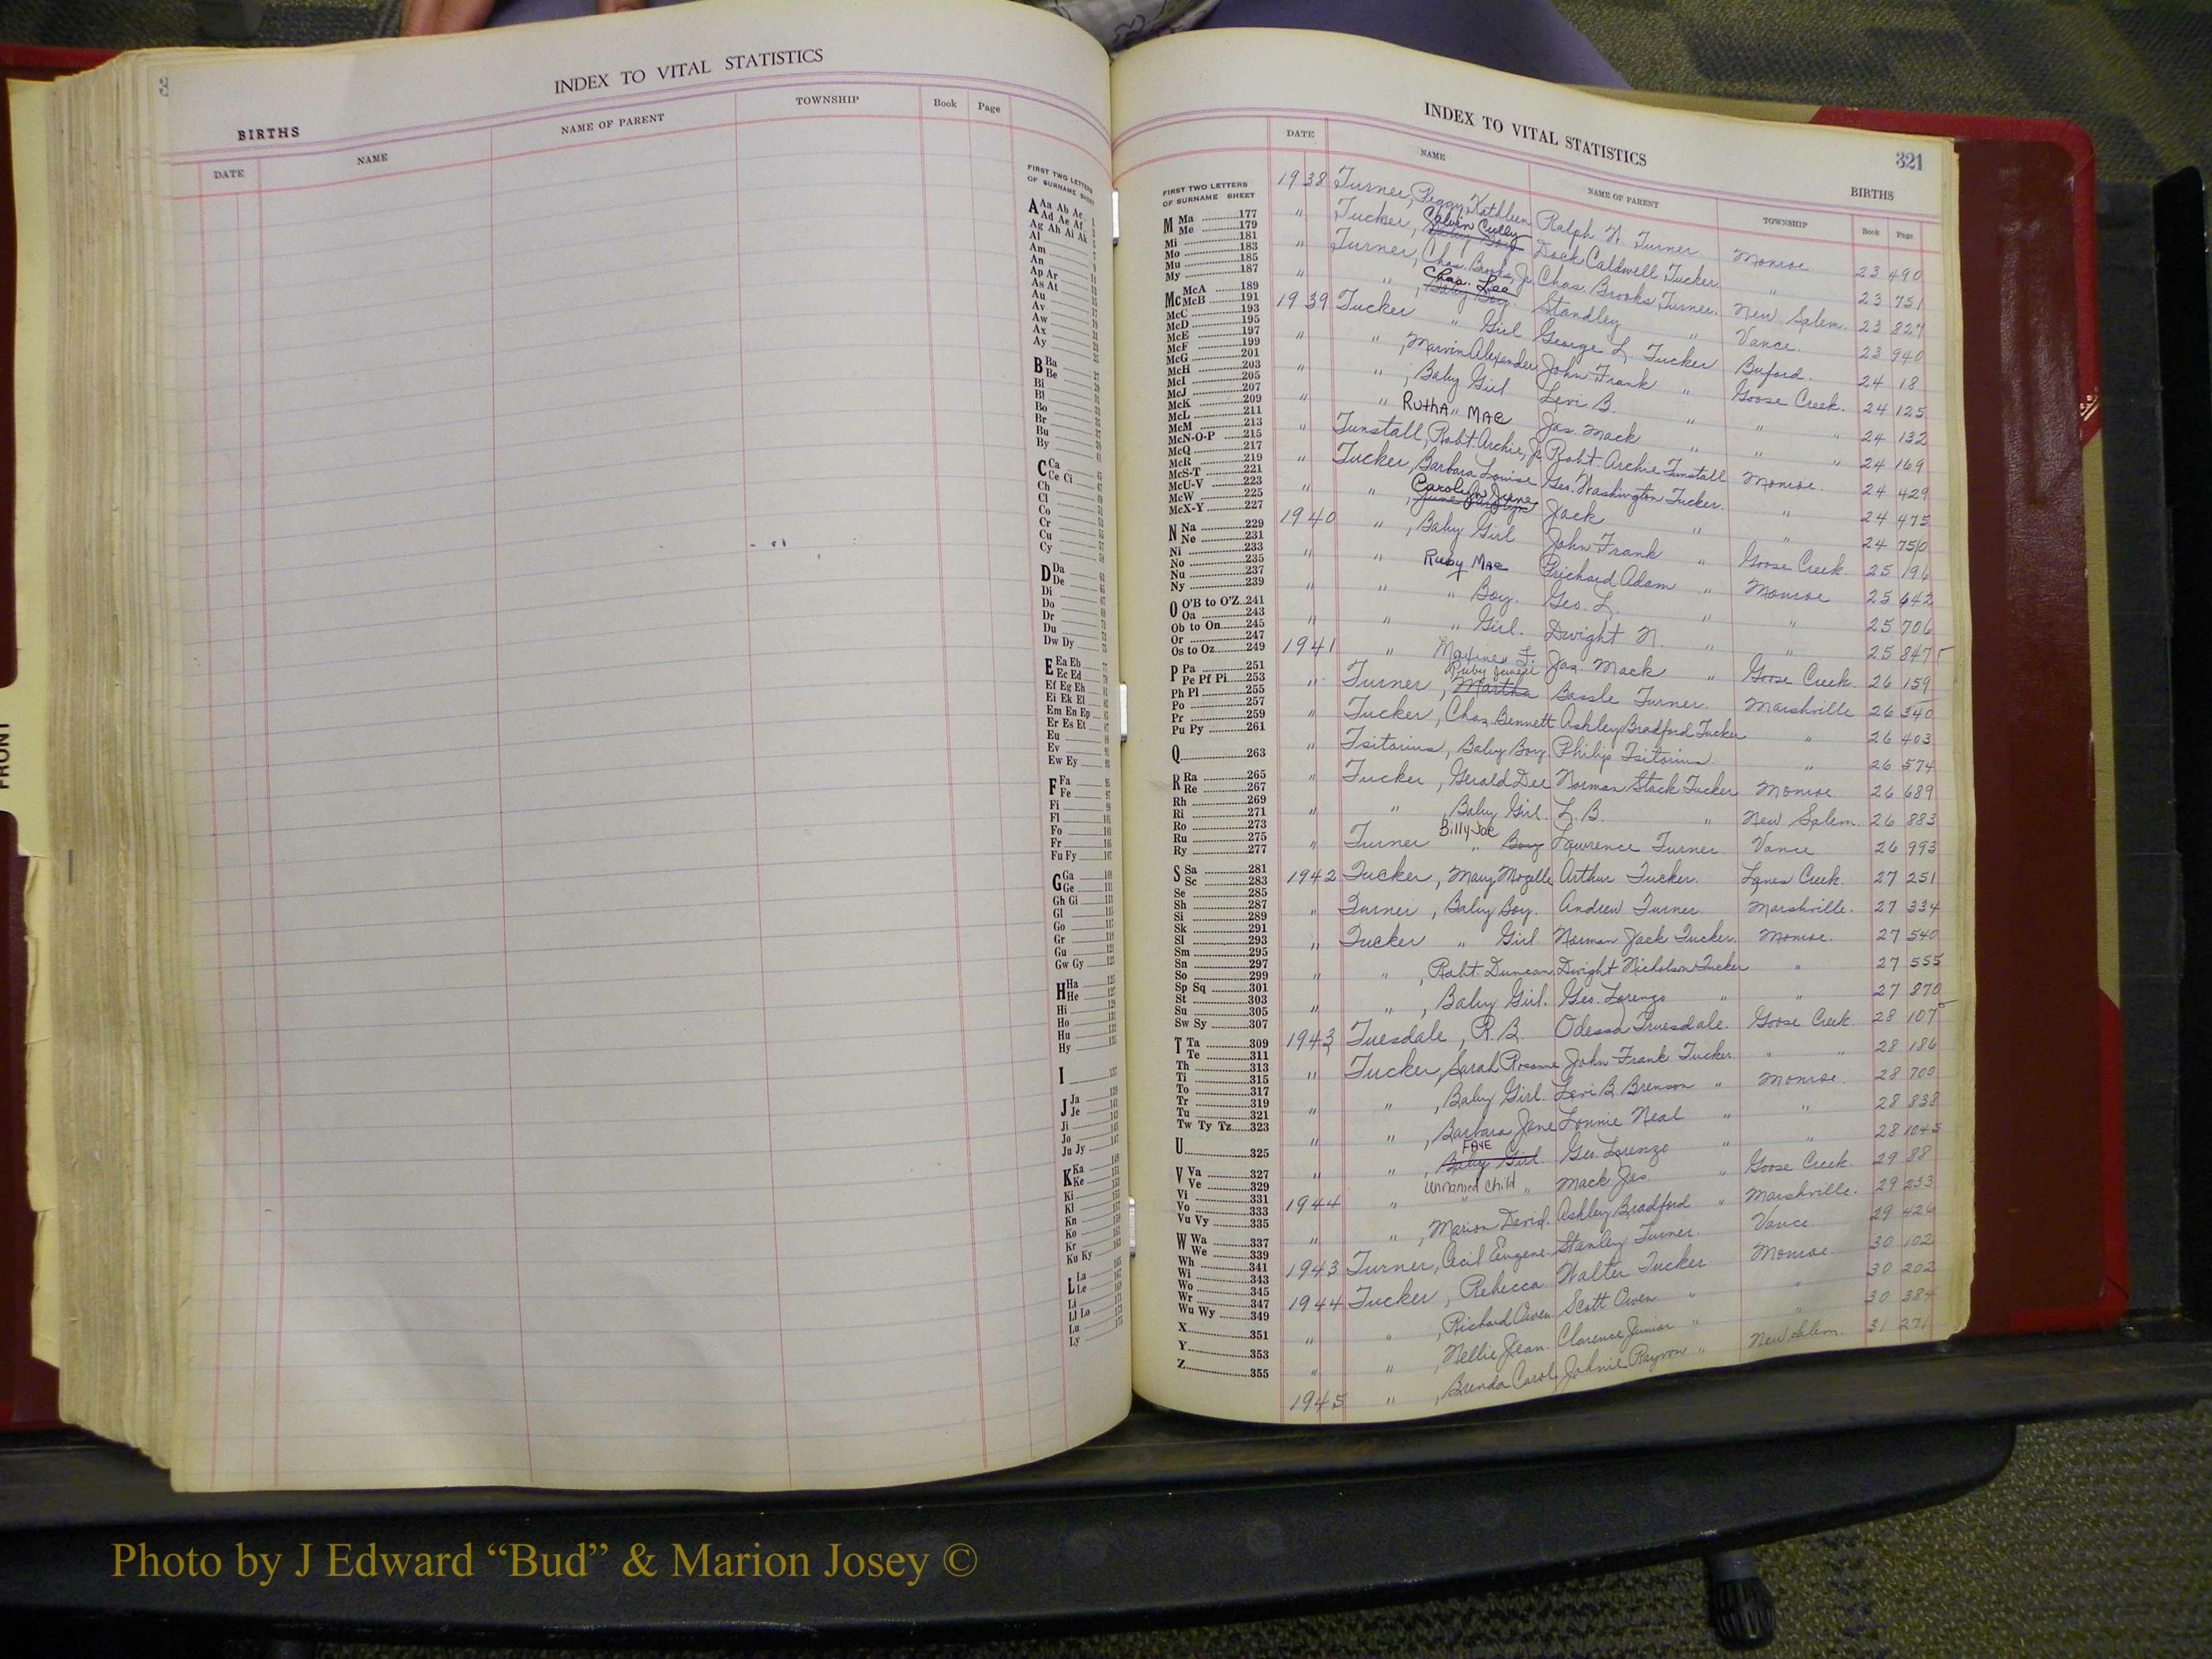 3
INDEX TO VITAL STATISTICS
BIRTHS
DATE NAME NAME OF PARENT TOWNSHIP Book Page
FIRST TWO LETTERS
OF SURNAME SHEET
A Aa Ab Ac
Ad Ae Af
Ag Ah Ai Ak
Al
Am
An
Ap Ar
As At
Au
Av
Aw
Ax
Ay
B Ba
Be
Bi
Bl
Bo
Br
Bu
By
C Ca
Ce Ci
Ch
Cl
Co
Cr
Cu
Cy
D Da
De
Di
Do
Dr
Du
Dw Dy
E Ea Eb
Ec Ed
Ef Eg Eh
Ei Ek El
Em En Ep
Er Es Et
Eu
Ev
Ew Ey
F Fa
Fe
Fi
Fl
Fo
Fr
Fu Fy
G Ga
Ge
Gh Gi
Gl
Go
Gr
Gu
Gw Gy
H Ha
He
Hi
Ho
Hu
Hy
I
J Ja
Je
Ji
Jo
Ju Jy
K Ka
Ke
Ki
Kl
Kn
Ko
Kr
Ku Ky
L La
Le
Li
Ll Lo
Lu
Ly
FRONT
INDEX TO VITAL STATISTICS 321
BIRTHS
DATE NAME NAME OF PARENT TOWNSHIP Book Page
FIRST TWO LETTERS
OF SURNAME SHEET
M Ma 177
Me 179
Mi 181
Mo 183
Mu 185
My 187
Mc McA 189
McB 191
McC 193
McD 195
McE 197
McF 199
McG 201
McH 203
McI 205
McJ 207
McK 209
McL 211
McM 213
McN-O-P 215
McQ 217
McR 219
McS-T 221
McU-V 223
McW 225
McX-Y 227
N Na 229
Ne 231
Ni 233
No 235
Nu 237
Ny 239
O O'B to O'Z 241
Oa 243
Ob to On 245
Or 247
Os to Oz 249
P Pa 251
Pe Pf Pi 253
Ph Pl 255
Po 257
Pr 259
Pu Py 261
Q 263
R Ra 265
Re 267
Rh 269
Ri 271
Ro 273
Ru 275
Ry 277
S Sa 281
Sc 283
Se 285
Sh 287
Si 289
Sk 291
Sl 293
Sm 295
Sn 297
So 299
Sp Sq 301
St 303
Su 305
Sw Sy 307
T Ta 309
Te 311
Th 313
Ti 315
To 317
Tr 319
Tu 321
Tw Ty Tz 323
U 325
V Va 327
Ve 329
Vi 331
Vo 333
Vu Vy 335
W Wa 337
We 339
Wh 341
Wi 343
Wo 345
Wr 347
Wu Wy 349
X 351
Y 353
Z 355
1938 Turner, Peggy Kathleen Ralph W. Turner Monroe 23 490
" Tucker, Calvin Cully Baby Boy Dock Caldwell Tucker " 23 751
" Turner, Chas. Brooks, Jr. Chas. Brooks Turner. New Salem. 23 827
" " , Chas. Lee Baby Boy. Standley " Vance. 23 940
1939 Tucker " Girl George L. Tucker Buford. 24 18
" " , Marvin Alexander John Frank " Goose Creek. 24 125
" " , Baby Girl Levi B. " " " 24 132
" " RUTHA MAE Jas. Mack " " " 24 169
" Tunstall, Robt. Archie, Jr. Robt. Archie Tunstall Monroe. 24 429
" Tucker, Barbara Louise Geo. Washington Tucker. " 24 475
" " , Carolyn June Jack " " 24 750
1940 " , Baby Girl John Frank " Goose Creek. 25 196
" " Ruby Mae Prichard Adam " Monroe 25 642
" " " Boy. Geo. L. " " 25 706
" " " Girl. Dwight N. " " 25 847
1941 " Maxine L. Jas. Mack " Goose Creek. 26 159
" Turner, Ruby Jewell Martha Bassle Turner. Marshville 26 340
" Tucker, Chas. Bennett Ashley Bradford Tucker " 26 403
" Tsitorius, Baby Boy. Philip Tsitorius. " 26 574
" Tucker, Gerald Dee Norman Stack Tucker Monroe 26 689
" " , Baby Girl. L. B. " New Salem. 26 883
" Turner Billy Joe " Boy Lawrence Turner. Vance 26 993
1942 Tucker, Mary Mozelle Arthur Tucker. Lanes Creek. 27 251
" Turner, Baby Boy. Andrew Turner. Marshville. 27 334
" Tucker " Girl Norman Jack Tucker. Monroe. 27 540
" " , Robt. Duncan. Dwight Nicholson Tucker " 27 555
" " , Baby Girl. Geo. Lorenzo " " 27 870
1943 Tuesdale, R. B. Odessa Truesdale. Goose Creek 28 107
" Tucker, Sarah Rosanne John Frank Tucker. " " 28 186
" " , Baby Girl. Levi B. Brenson " Monroe. 28 700
" " , Barbara Jane Lonnie Neal " " 28 838
" " , FAYE Baby Girl. Geo. Lorenzo " " 28 1045
1944 " Unnamed Child " Mack Jas. " Goose Creek. 29 88
" " , Marion David. Ashley Bradford " Marshville. 29 233
1943 Turner, Cecil Eugene. Stanley Turner. Vance 29 426
1944 Tucker, Rebecca Walter Tucker Monroe. 30 102
" " , Richard Owen Scott Owen " " 30 202
" " , Nellie Jean. Clarence Junior " " 30 384
1945 " , Brenda Carol Johnie Rayvon " New Salem. 31 271
Photo by J Edward “Bud” & Marion Josey ©